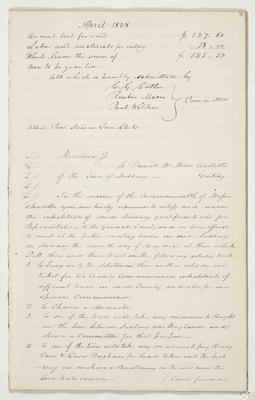 April 1838
Amount brot forward $ 127.50
Labor and materials for
Which leaves the sum of $ 145.50
Now to be granted
All which is humbly submitted by
C. G. Cutler
Reuben Moore
Paul Walker
Committee
Attest
Middlesex Ss To Daniel W. Moore constable
of the Town of Sudbury Greeting
In the name of the Commonwealth of Massa-
chusetts you are hereby required to notify and warn
the inhabitants of said Sudbury qualified to vote for
Representatives to the General Court, and in town affairs
to meet at the public meeting house in said Sudbury
on Monday the seventh day of May next at three oclock
P.M. then and there to act on the following articles viz
1. To bring in to the Selectmen their votes on one
ticket for two County Commissioners, inhabitants of
different towns in said County, and also for one
special Commissioner.
2. To Choose a Moderator
3. To see if the town will take any measures to
on the line between Sudbury and Wayland and
choose a Committee for that purpose.
4. To see if the town will take any measures to pay Henry
and Lewis for land taken into the high
way in making a in the road over the
Town causeway. (Carried forward)